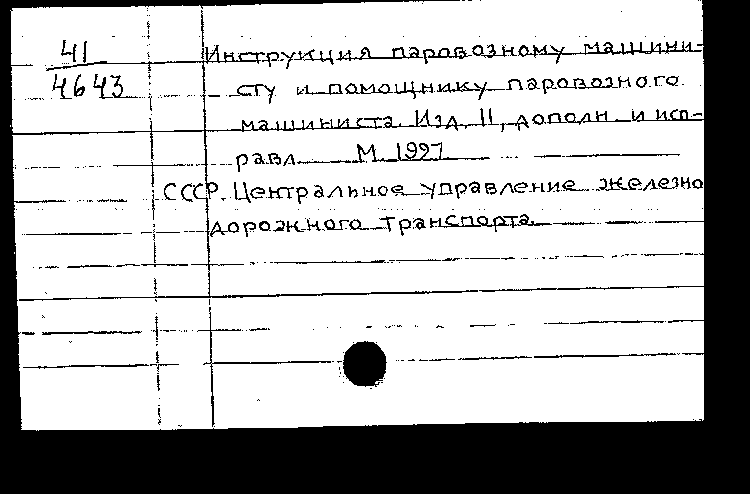 41
4643
Инструкция паровозному машини-
сту и помощнику паровозного
машиниста. Изд. II, дополн. и исп-
равл. М. 1997
СССР. Центральное управление железно
дорожного транспорта.